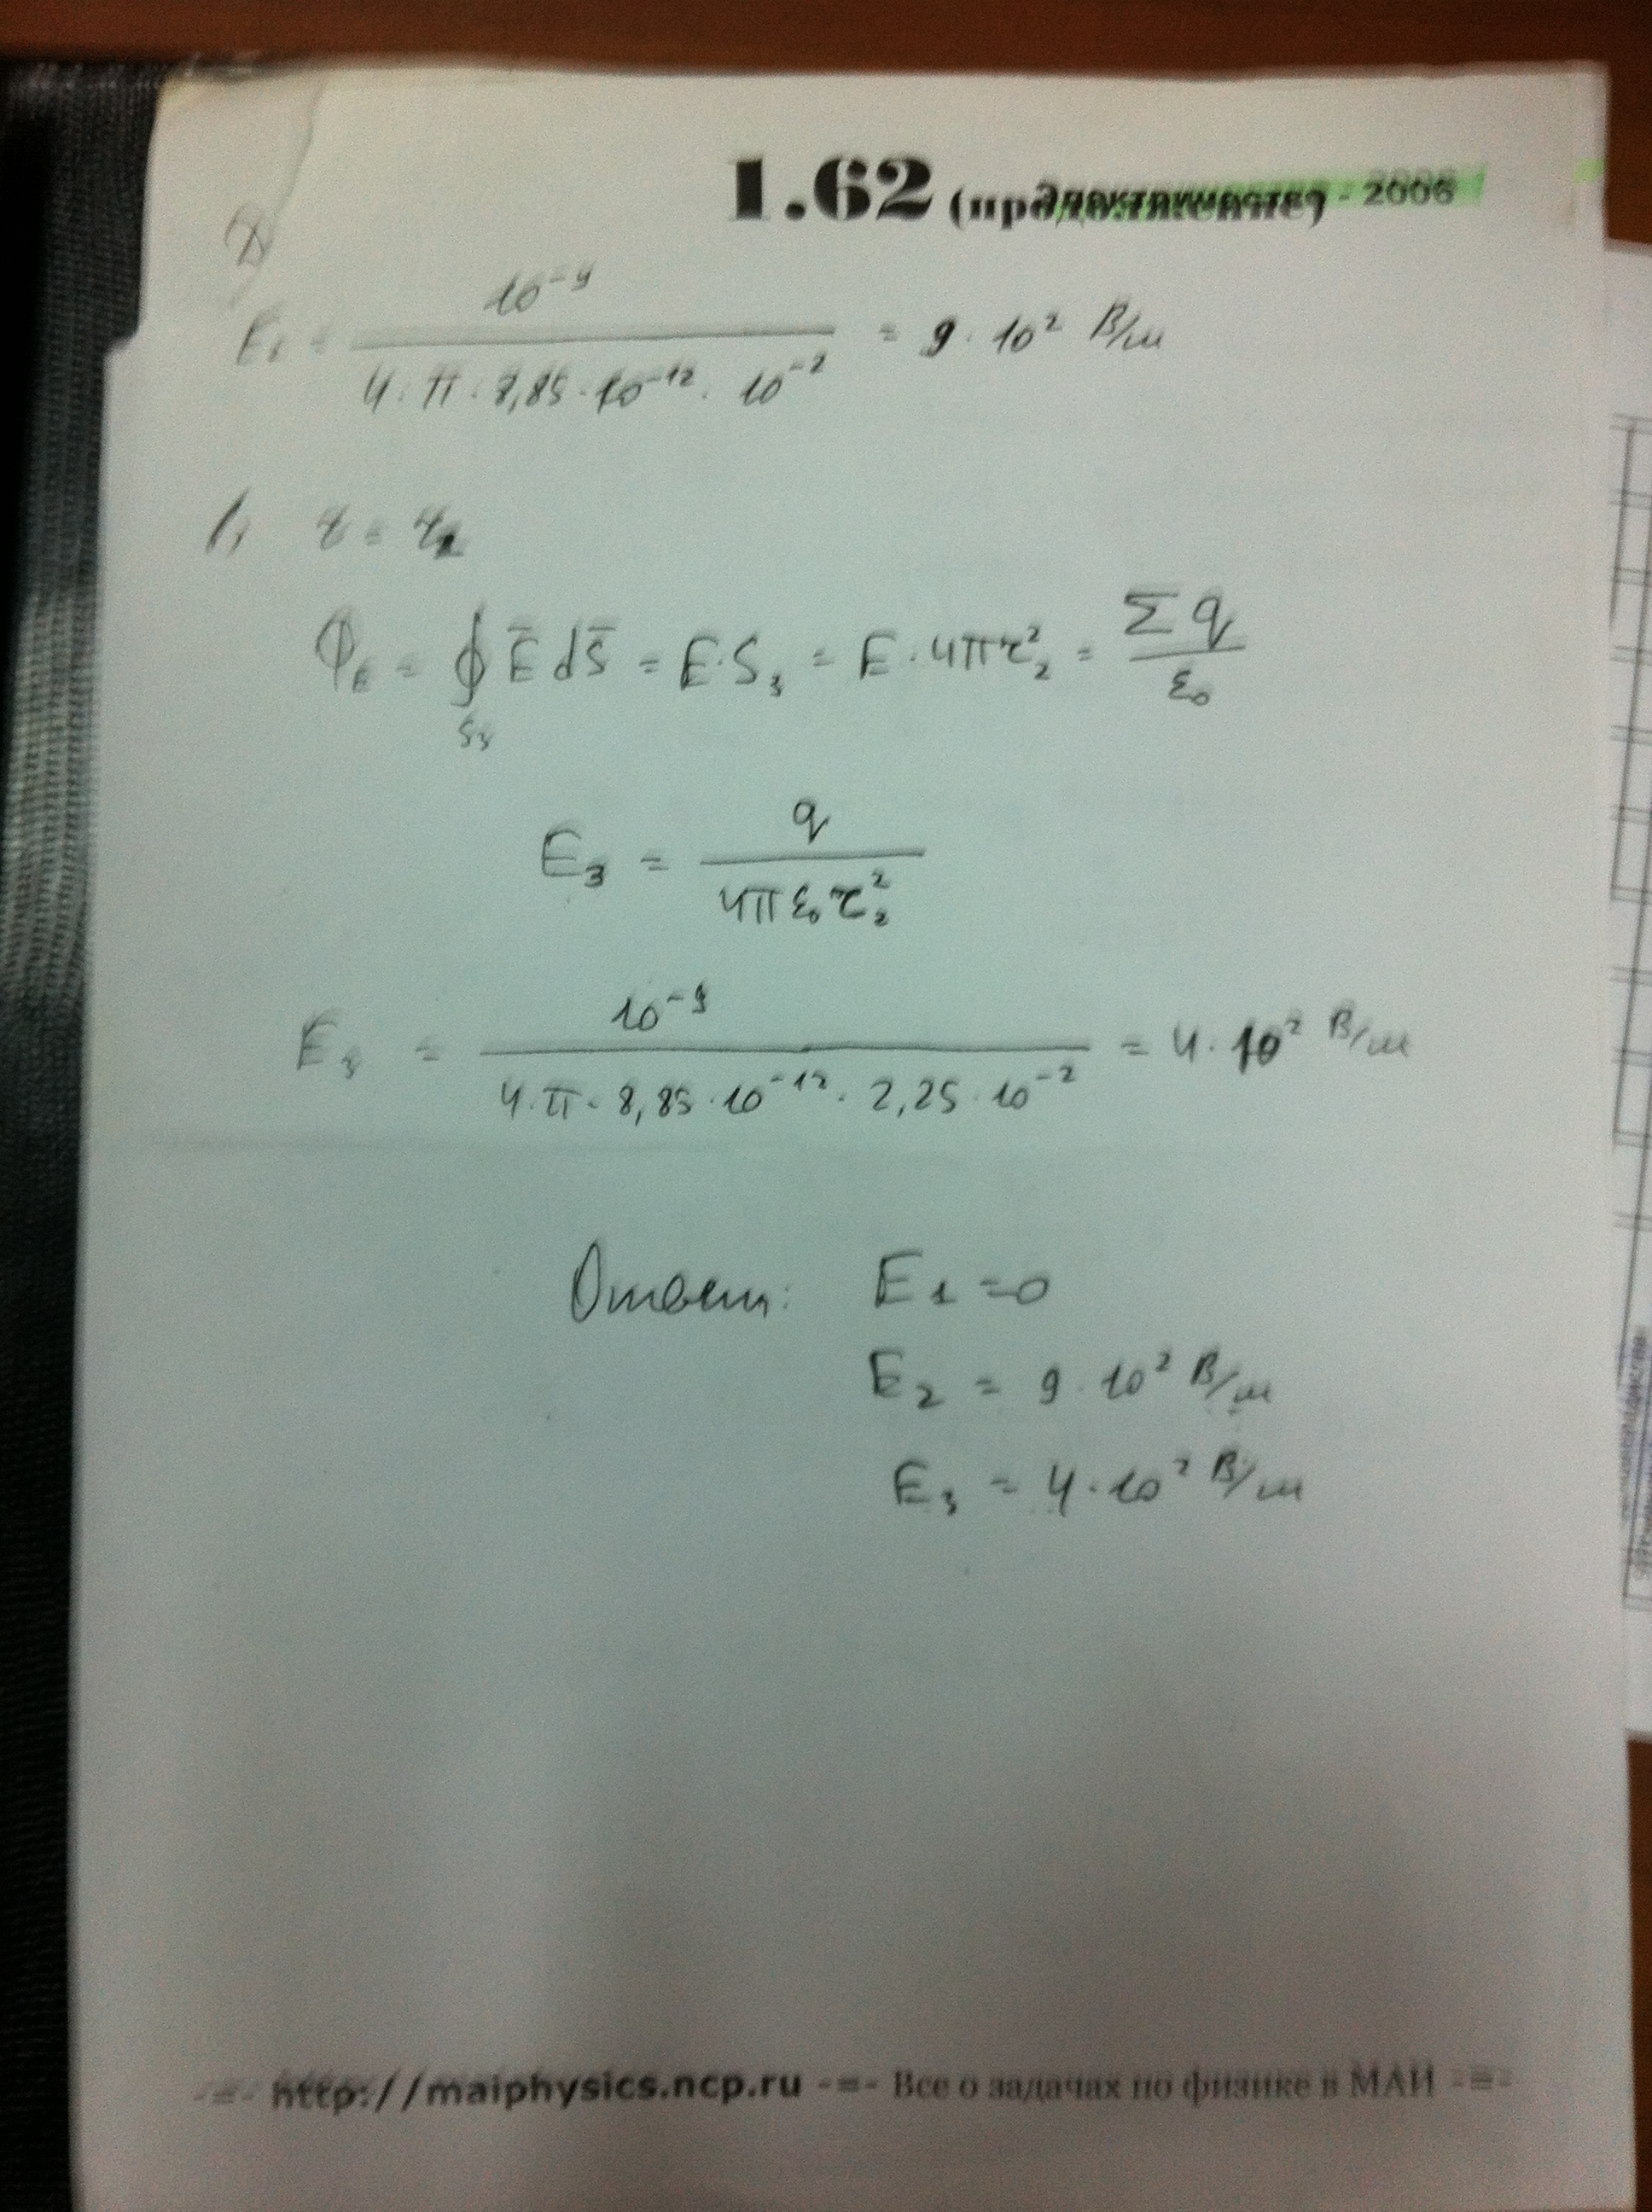 1.62 (продолжение) Электричество - 2006
E₂ = 10⁻⁹ / (4 · π · 8,85 · 10⁻¹² · 10⁻²) = 9 · 10² В/м
r = r₂
Φ_E = ∮_S₃ E̅ dS̅ = E·S₃ = E · 4πr₂² = Σq / ε₀
E₃ = q / (4πε₀r₂²)
E₃ = 10⁻⁹ / (4·π· 8,85 · 10⁻¹² · 2,25 · 10⁻²) = 4 · 10² В/м
Ответ: E₁ = 0
E₂ = 9 · 10² В/м
E₃ = 4 · 10² В/м
-=- http://maiphysics.ncp.ru -=- Все о задачах по физике в МАИ -=-